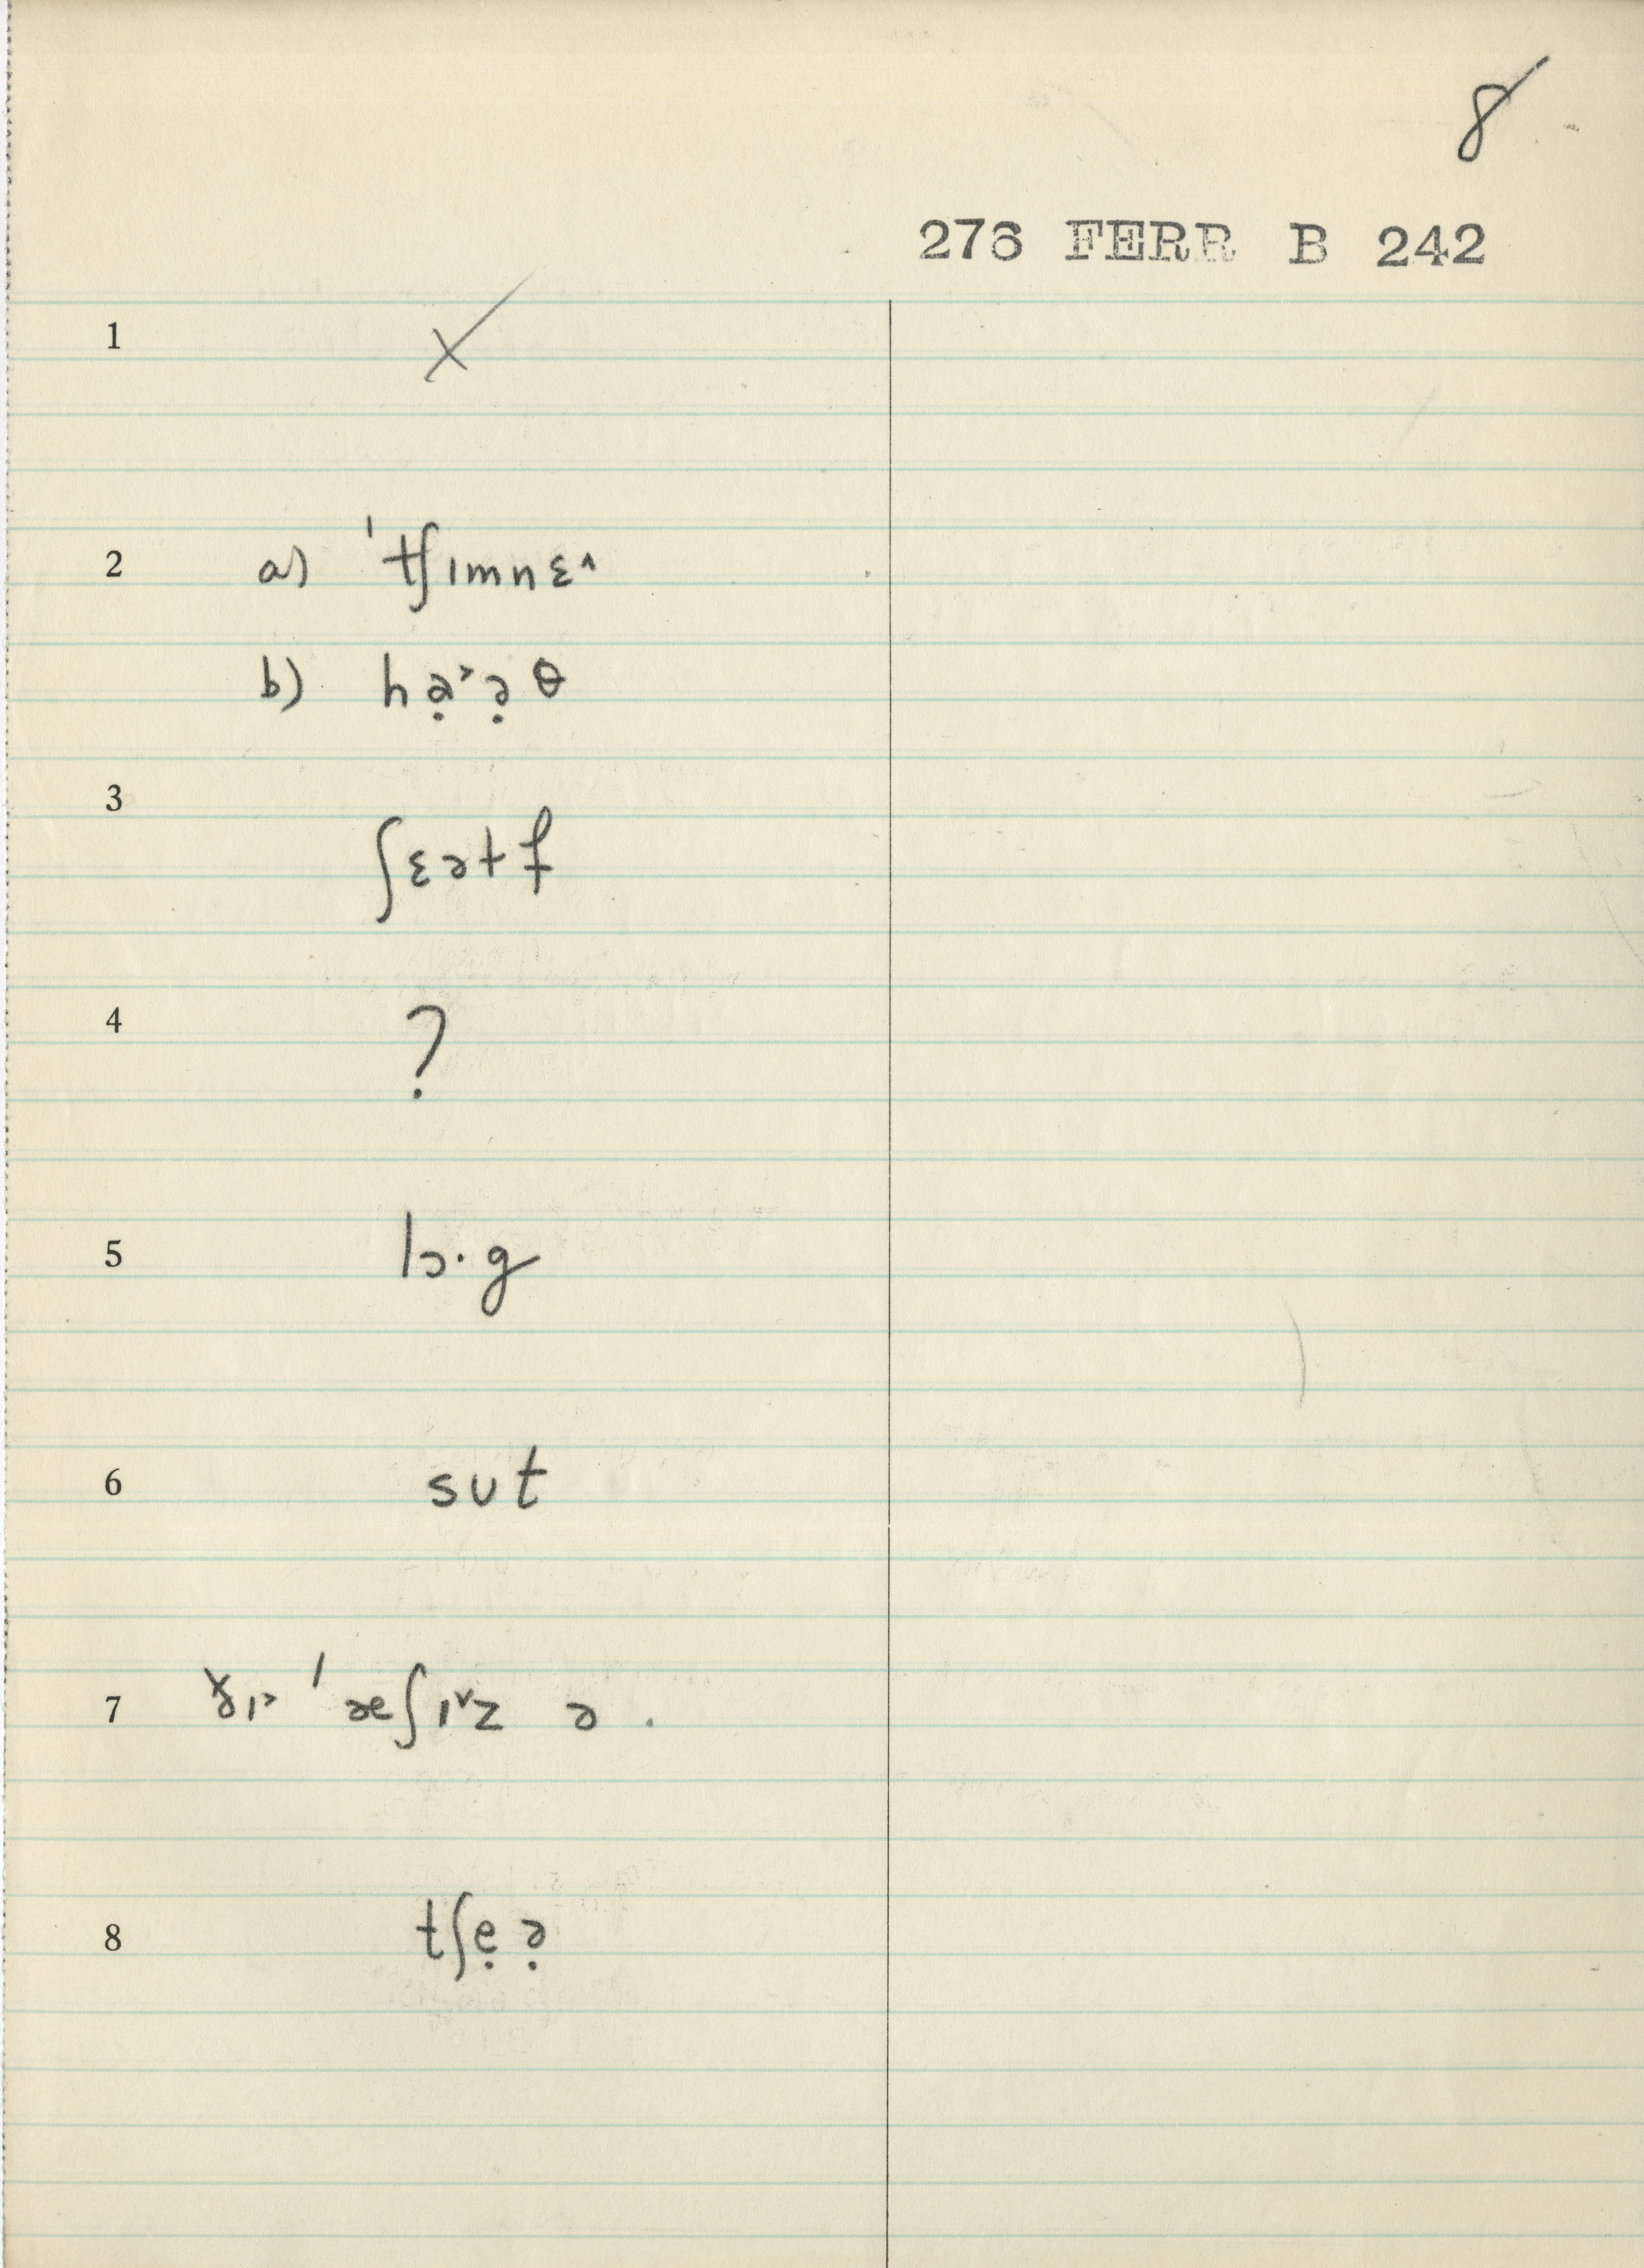 8
276 FERR B 242
1 X
2 a) ˈtʃɪmnɛ˄
b) hạ˃ə̣ θ
3 ʃɛətf
4 ?
5 lɔ·g
6 sʊt
7 ðɪ˃ ˈæʃɪ˅z ə .
8 tʃẹə̣